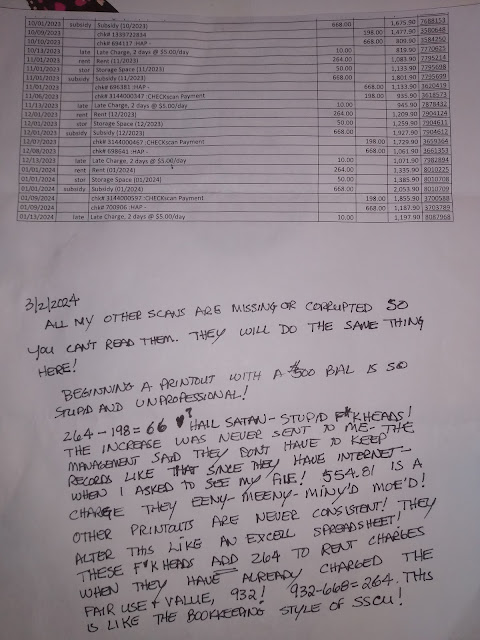 10/01/2023 subsidy Subsidy (10/2023) 668.00 1,675.90 7688153
10/09/2023 chk# 1339722834 198.00 1,477.90 3580648
10/10/2023 chk# 694117 :HAP - 668.00 809.90 3584250
10/13/2023 late Late Charge, 2 days @ $5.00/day 10.00 819.90 7770625
11/01/2023 rent Rent (11/2023) 264.00 1,083.90 7795214
11/01/2023 stor Storage Space (11/2023) 50.00 1,133.90 7795698
11/01/2023 subsidy Subsidy (11/2023) 668.00 1,801.90 7795699
11/01/2023 chk# 696381 :HAP - 668.00 1,133.90 3620419
11/06/2023 chk# 3144000347 :CHECKscan Payment 198.00 935.90 3618573
11/13/2023 late Late Charge, 2 days @ $5.00/day 10.00 945.90 7878432
12/01/2023 rent Rent (12/2023) 264.00 1,209.90 7904124
12/01/2023 stor Storage Space (12/2023) 50.00 1,259.90 7904611
12/01/2023 subsidy Subsidy (12/2023) 668.00 1,927.90 7904612
12/07/2023 chk# 3144000467 :CHECKscan Payment 198.00 1,729.90 3659364
12/08/2023 chk# 698641 :HAP - 668.00 1,061.90 3661353
12/13/2023 late Late Charge, 2 days @ $5.00/day 10.00 1,071.90 7982894
01/01/2024 rent Rent (01/2024) 264.00 1,335.90 8010225
01/01/2024 stor Storage Space (01/2024) 50.00 1,385.90 8010708
01/01/2024 subsidy Subsidy (01/2024) 668.00 2,053.90 8010709
01/09/2024 chk# 3144000597 :CHECKscan Payment 198.00 1,855.90 3700588
01/09/2024 chk# 700906 :HAP - 668.00 1,187.90 3703789
01/13/2024 late Late Charge, 2 days @ $5.00/day 10.00 1,197.90 8087968
3/2/2024
ALL MY OTHER SCANS ARE MISSING OR CORRUPTED SO
YOU CANT READ THEM. THEY WILL DO THE SAME THING
HERE!
BEGINNING A PRINTOUT WITH A $500 BAL IS SO
STUPID AND UNPROPESSIONAL!
264-198=66 ? HAIL SATAN-STUPID F*KHEADS!
THE INCREASE WAS NEVER SENT TO ME-THE
MANAGEMENT SAID THEY DONT HAVE TO KEEP
RECORDS LIKE THAT SINCE THEY HAVE INTERNET-
WHEN I ASKED TO SEE MY FILE! 554.81 IS A
CHARGE THEY EENY-MEENY-MINY'D MOE'D!
OTHER PRINTOUTS ARE NEVER CONSISTENT! THEY
ALTER THIS LIKE AN EXCELL SPREADSHEET!
THESE F*K HEADS ADD 264 TO RENT CHARGES
WHEN THEY HAVE ALREADY CHARGED THE
FAIR USE + VALUE, 932! 932-668=264. THIS
IS LIKE THE BOOKKEEPING STYLE OF SSCU!